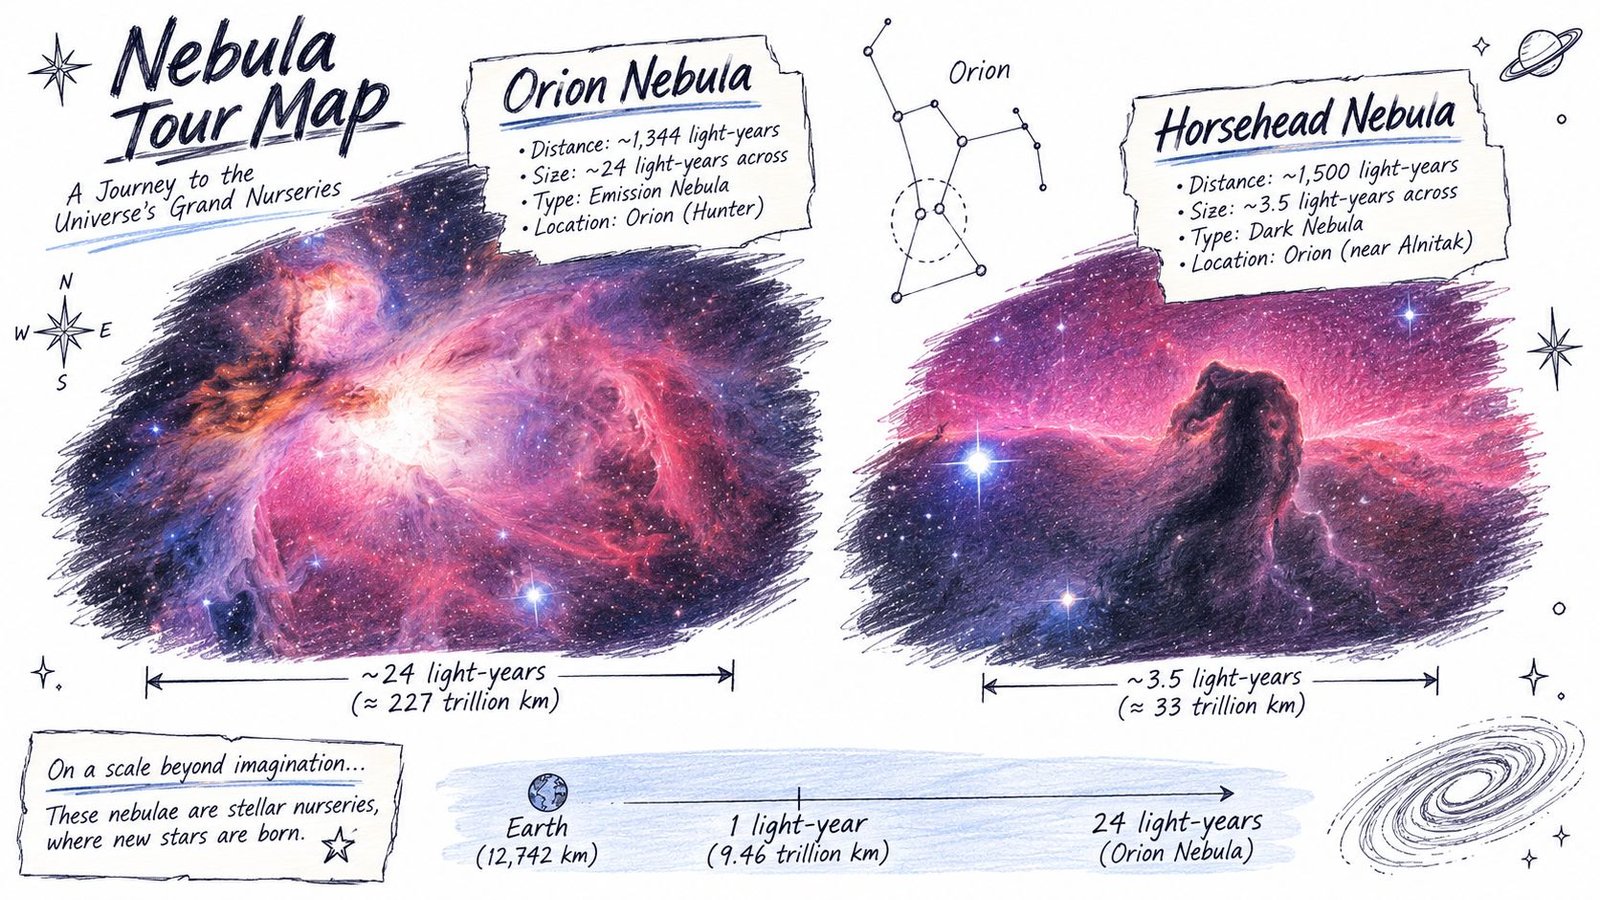 Nebula
Tour Map
A Journey to the
Universe's Grand Nurseries
N
W
E
S
Orion Nebula
• Distance: ~1,344 light-years
• Size: ~24 light-years across
• Type: Emission Nebula
• Location: Orion (Hunter)
Orion
Horsehead Nebula
• Distance: ~1,500 light-years
• Size: ~3.5 light-years across
• Type: Dark Nebula
• Location: Orion (near Alnitak)
~24 light-years
(≈ 227 trillion km)
~3.5 light-years
(≈ 33 trillion km)
On a scale beyond imagination...
These nebulae are stellar nurseries,
where new stars are born.
Earth
(12,742 km)
1 light-year
(9.46 trillion km)
24 light-years
(Orion Nebula)